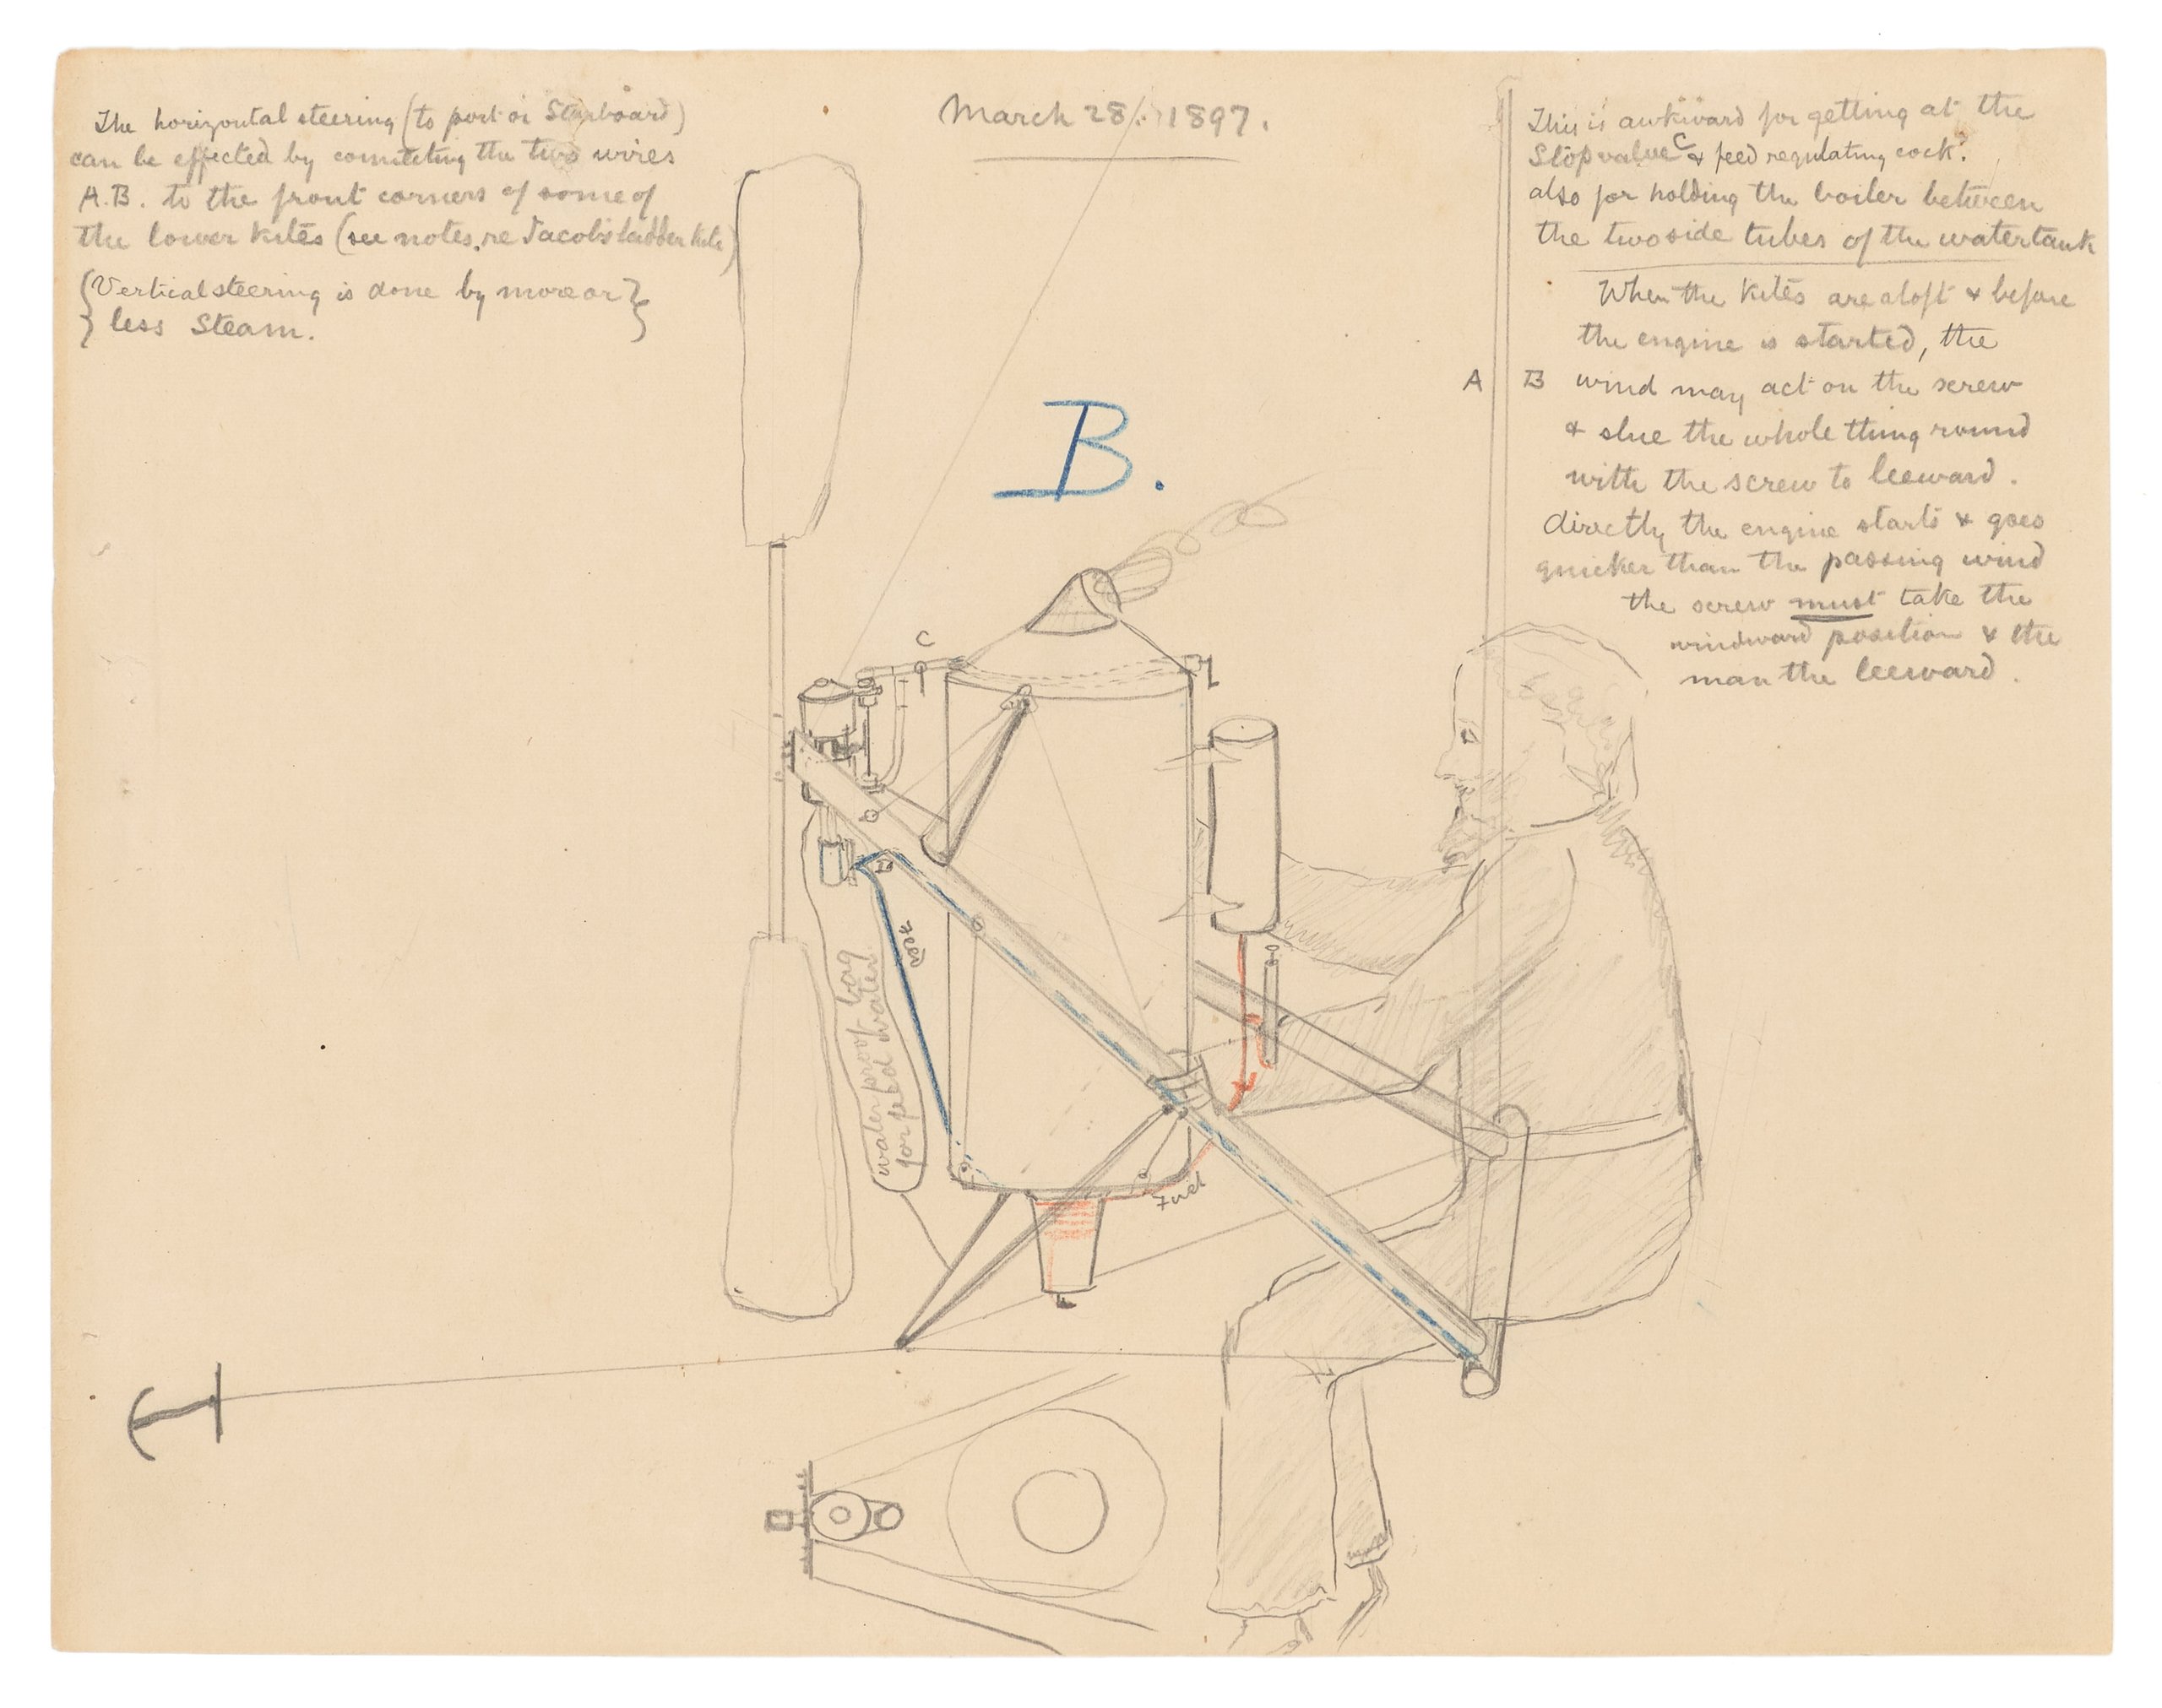 March 28/. 1897.
The horizontal steering (to port or Starboard)
can be effected by connecting the two wires
A.B. to the front corners of some of
the lower kites (see notes, re Jacob's ladder kite)
{Vertical steering is done by more or}
{less Steam.}
This is awkward for getting at the
Stop value C & feed regulating cock?
also for holding the boiler between
the two side tubes of the watertank
When the kites are aloft & before
the engine is started, the
wind may act on the screw
& slue the whole thing round
with the screw to leeward.
directly the engine starts & goes
quicker than the passing wind
the screw must take the
windward position & the
man the leeward.
A
B
B.
C
waterproof bag
for feed water.
Fuel